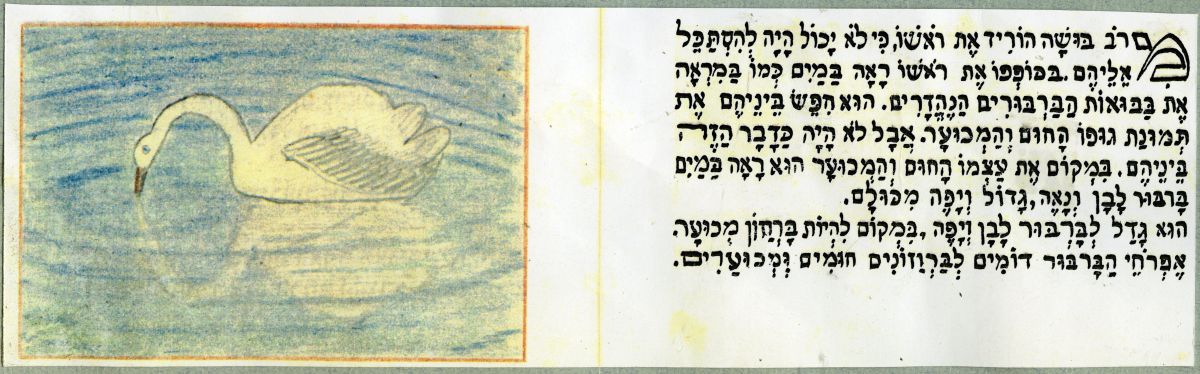 מֵרֹב בּוּשָׁה הוֹרִיד אֶת רֹאשׁוֹ, כִּי לֹא יָכוֹל הָיָה לְהִסְתַּכֵּל
אֲלֵיהֶם. בְּכוֹפְפוֹ אֶת רֹאשׁוֹ רָאָה בַּמַּיִם כְּמוֹ בַּמַּרְאָה
אֶת בַּבוּאוֹת הַבַּרְבּוּרִים הַנֶּהֱדָרִים. הוּא חִפֵּשׂ בֵּינֵיהֶם אֶת
תְּמוּנַת גּוּפוֹ הַחוּם וְהַמְכוֹעָר. אֲבָל לֹא הָיָה כַּדָּבָר הַזֶּה
בֵּינֵיהֶם. בִּמְקוֹם אֶת עַצְמוֹ הַחוּם וְהַמְכוֹעָר הוּא רָאָה בַּמַּיִם
בַּרְבּוּר לָבָן וְנָאֶה, גָּדוֹל וְיָפֶה מִכּוּלָם.
הוּא גָּדַל לְבַרְבּוּר לָבָן וְיָפֶה, בִּמְקוֹם לִהְיוֹת בַּרְוָזוֹן מְכוֹעָר.
אֶפְרֹחֵי הַבַּרְבּוּר דוֹמִים לְבַרְוָזוֹנִים חוּמִים וּמְכוֹעָרִים.